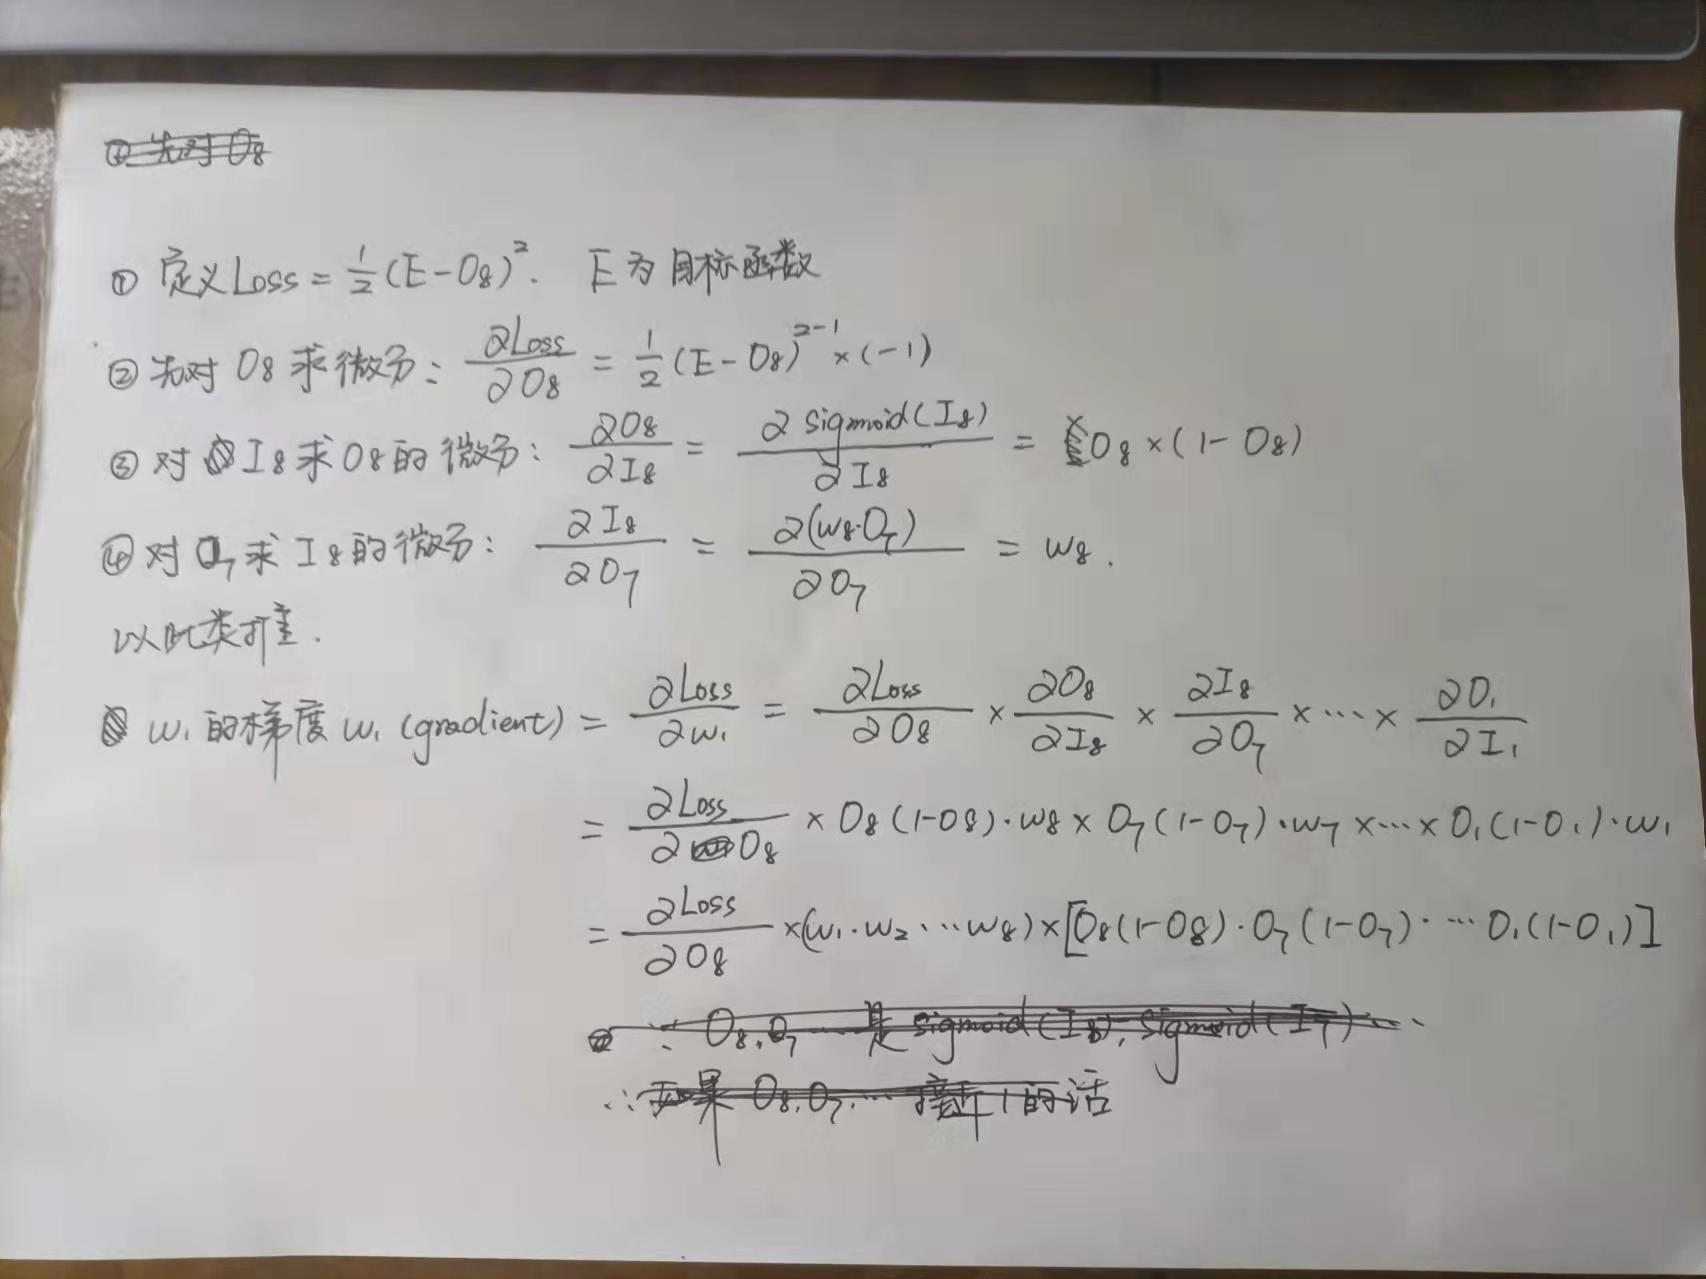 ① 先对 O₈
① 定义Loss = 1/2 (E-O₈)². E为目标函数
② 先对 O₈ 求微分: ∂Loss/∂O₈ = 1/2 (E-O₈)²⁻¹ × (-1)
③ 对 I₈ 求 O₈ 的微分: ∂O₈/∂I₈ = ∂sigmoid(I₈)/∂I₈ = O₈ × (1-O₈)
④ 对 O₇ 求 I₈ 的微分: ∂I₈/∂O₇ = ∂(w₈·O₇)/∂O₇ = w₈.
以此类推.
w₁ 的梯度 w₁ (gradient) = ∂Loss/∂w₁ = ∂Loss/∂O₈ × ∂O₈/∂I₈ × ∂I₈/∂O₇ × ... × ∂O₁/∂I₁
= ∂Loss/∂O₈ × O₈(1-O₈)·w₈ × O₇(1-O₇)·w₇ × ... × O₁(1-O₁)·w₁
= ∂Loss/∂O₈ × (w₁·w₂...w₈) × [O₈(1-O₈)·O₇(1-O₇)·...O₁(1-O₁)]
∵ O₈,O₇ 是 sigmoid(I₈), sigmoid(I₇)...
∴ 如果 O₈,O₇... 接近1的话